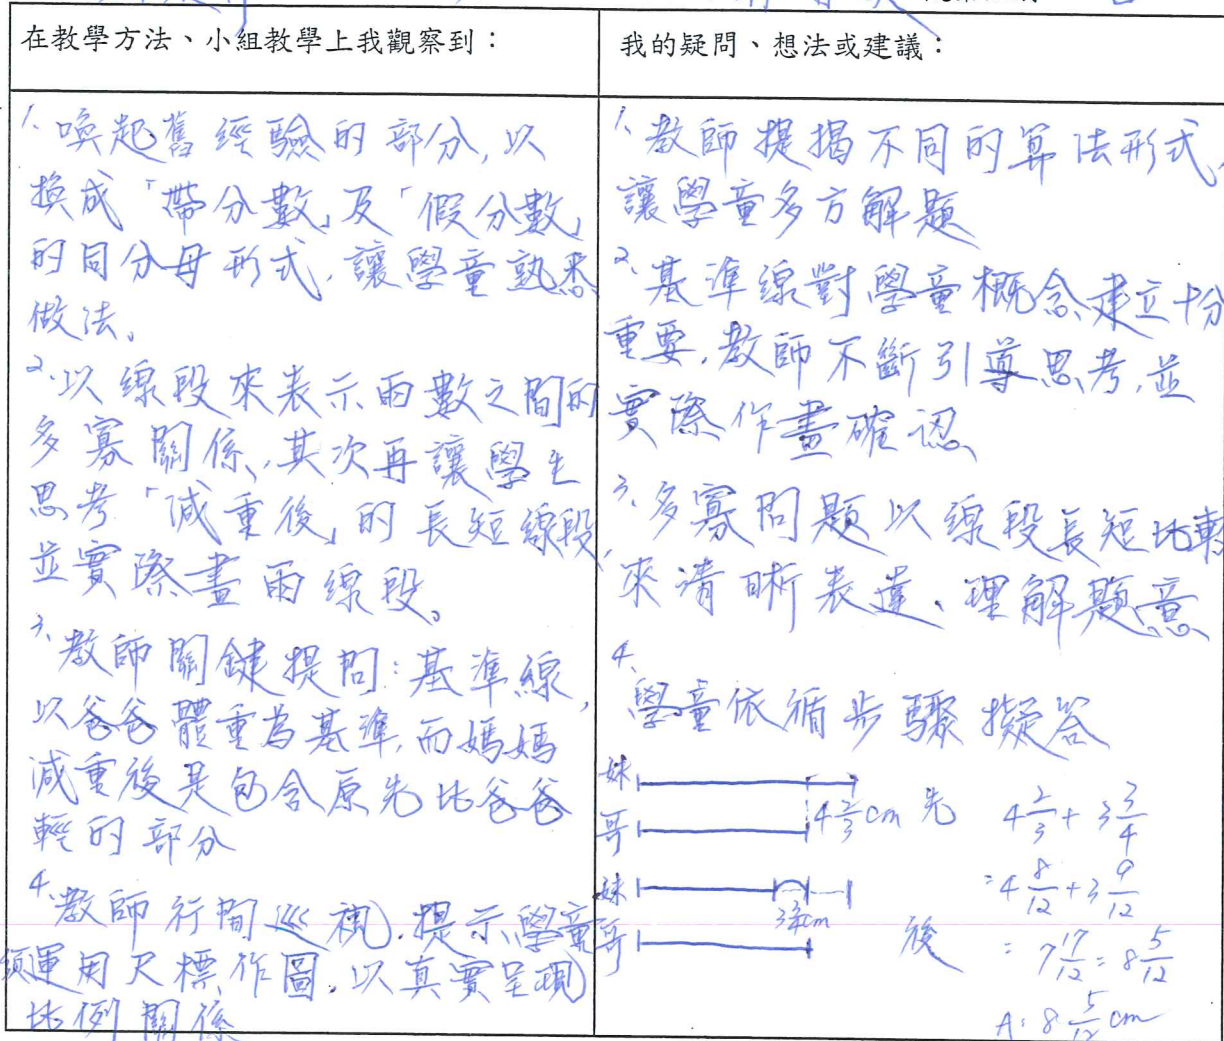 在教學方法、小組教學上我觀察到：
1、喚起舊經驗的部分，以
換成「帶分數」及「假分數」
的同分母形式，讓學童熟悉
做法。
2、以線段來表示兩數之間的
多寡關係，其次再讓學生
思考「減重後」的長短線段，
並實際畫兩線段。
3、教師關鍵提問：基準線，
以爸爸體重為基準，而媽媽
減重後是包含原先比爸爸
輕的部分
4、教師行間巡視，提示學童
須運用尺標作圖，以真實呈現
比例關係
我的疑問、想法或建議：
1、教師提揭不同的算法形式，
讓學童多方解題
2、基準線對學童概念建立十分
重要，教師不斷引導思考，並
實際作畫確認
3、多寡問題以線段長短比較
來清晰表達、理解題意
4、
學童依循步驟擬答
妹
哥
4 2/3 cm 先
妹
哥
3 3/4 cm
後
4 2/3 + 3 3/4
= 4 8/12 + 3 9/12
= 7 17/12 = 8 5/12
A: 8 5/12 cm